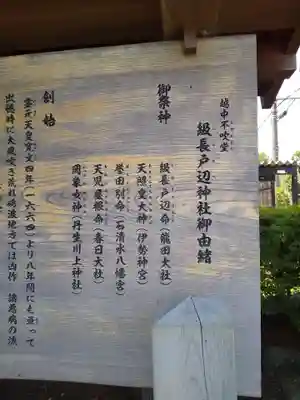 越中不吹堂
級長戸辺神社御由緒
御祭神
級長戸辺命(龍田大社)
天照皇大神(伊勢神宮)
誉田別命(石清水八幡宮)
天児屋根命(春日大社)
罔象女神(丹生川上神社)
創始
霊元天皇寛文四年(一六六四)より八年間にも亘って
出穂時に大風吹き荒れ砺波地方では凶作 諸悪病の流